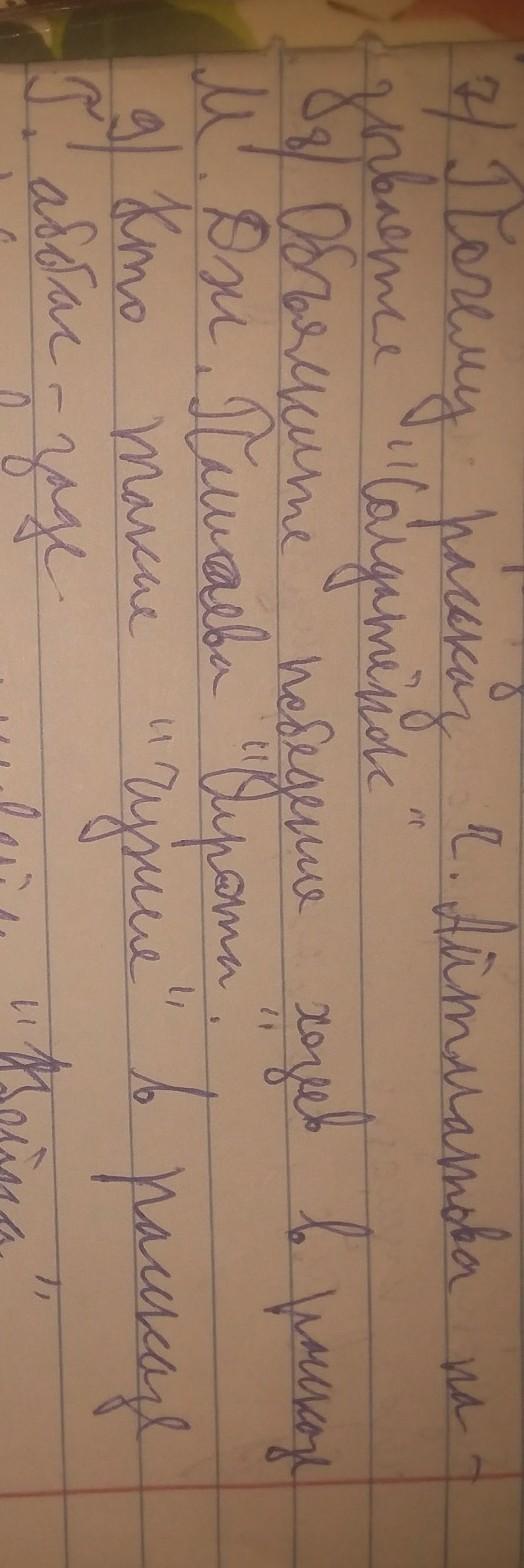 7) Почему рассказ Ч. Айтматова на-
зывается "Солдатёнок"
8) Объясните поведение хозяев в рассказе
М. Дж. Пашаева "Сироты".
9) Кто такие "чужие" в рассказе
Г. аббас-заде
"Война"